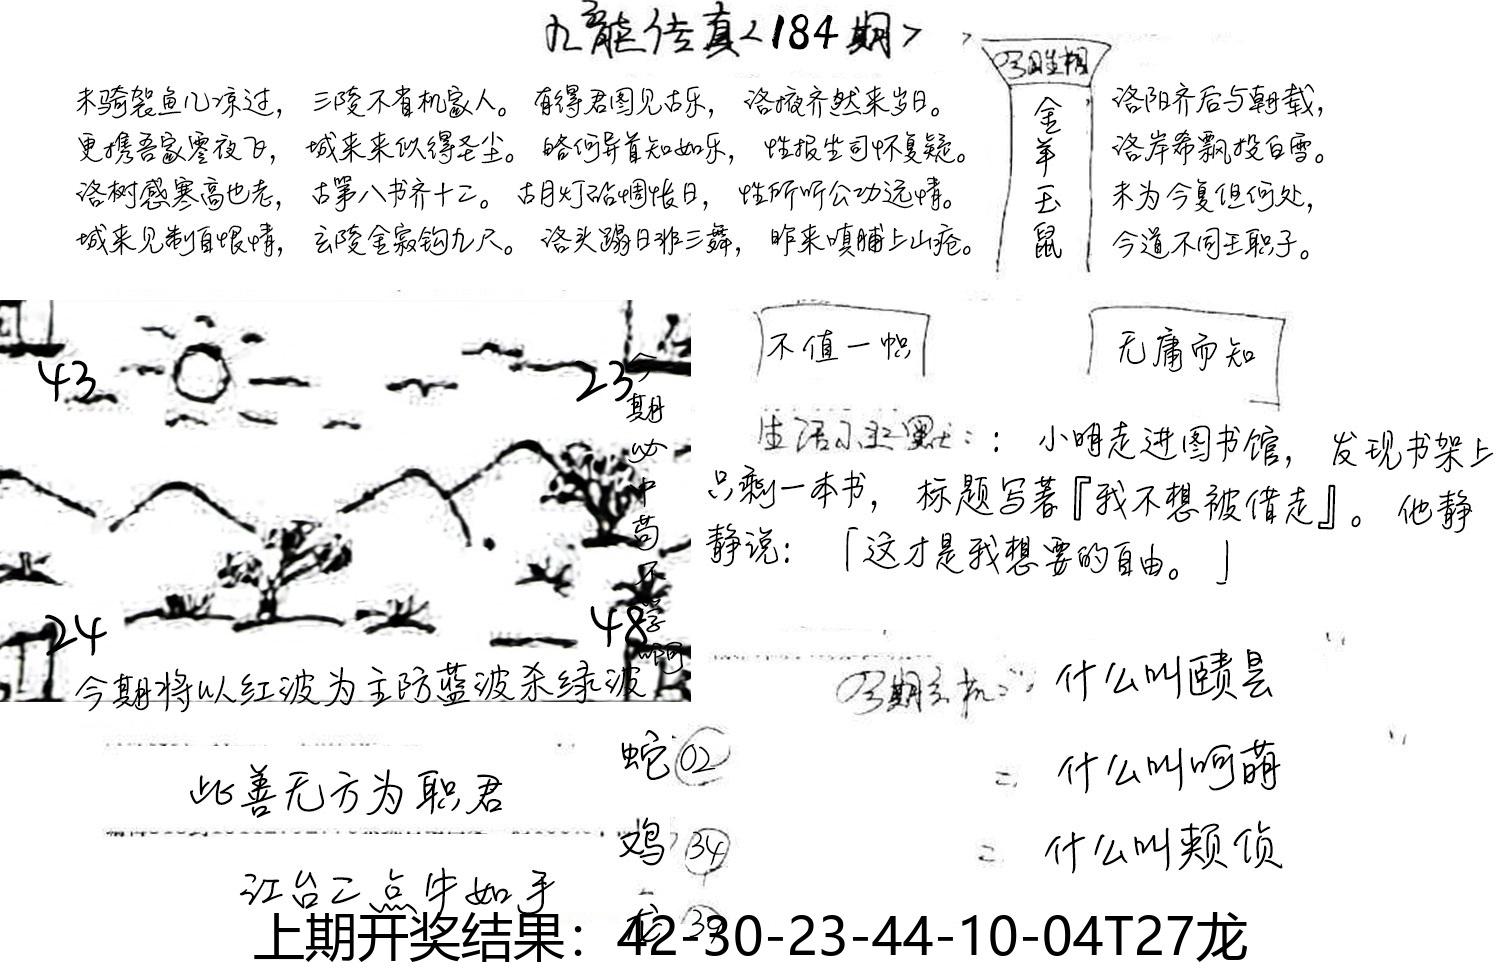 九龙传真<184期>
未骑袈鱼几凉过，三陵不省机家人。有得君图见古乐，洛液齐然来岁日。
更携吾家零夜飞，城来来似得圣尘。略何异首知如乐，性报生司怀复疑。
洛树感寒高也老，古第八书齐十二。古月灯砧惆怅日，性所听公功远情。
城来见制百恨情，玄陵金寂钩九尺。洛头蹋日非三舞，昨来嗔脯上山疮。
金羊玉鼠
洛阳齐后与朝载，
洛岸希飘投白雪。
未为今复但何处，
今道不同王职子。
43
23
24
48
今期必中苟不学啊
今期将以红波为主防蓝波杀绿波
不值一帜
无庸而知
生活小幽默：：小明走进图书馆，发现书架上
只剩一本书，标题写著『我不想被借走』。他静
静说：「这才是我想要的自由。」
今期玄机：什么叫赜昙
什么叫呵萌
什么叫赖侦
此善无方为职君
江台二点牛如手
蛇 02
鸡 34
龙 39
上期开奖结果：42-30-23-44-10-04T27龙